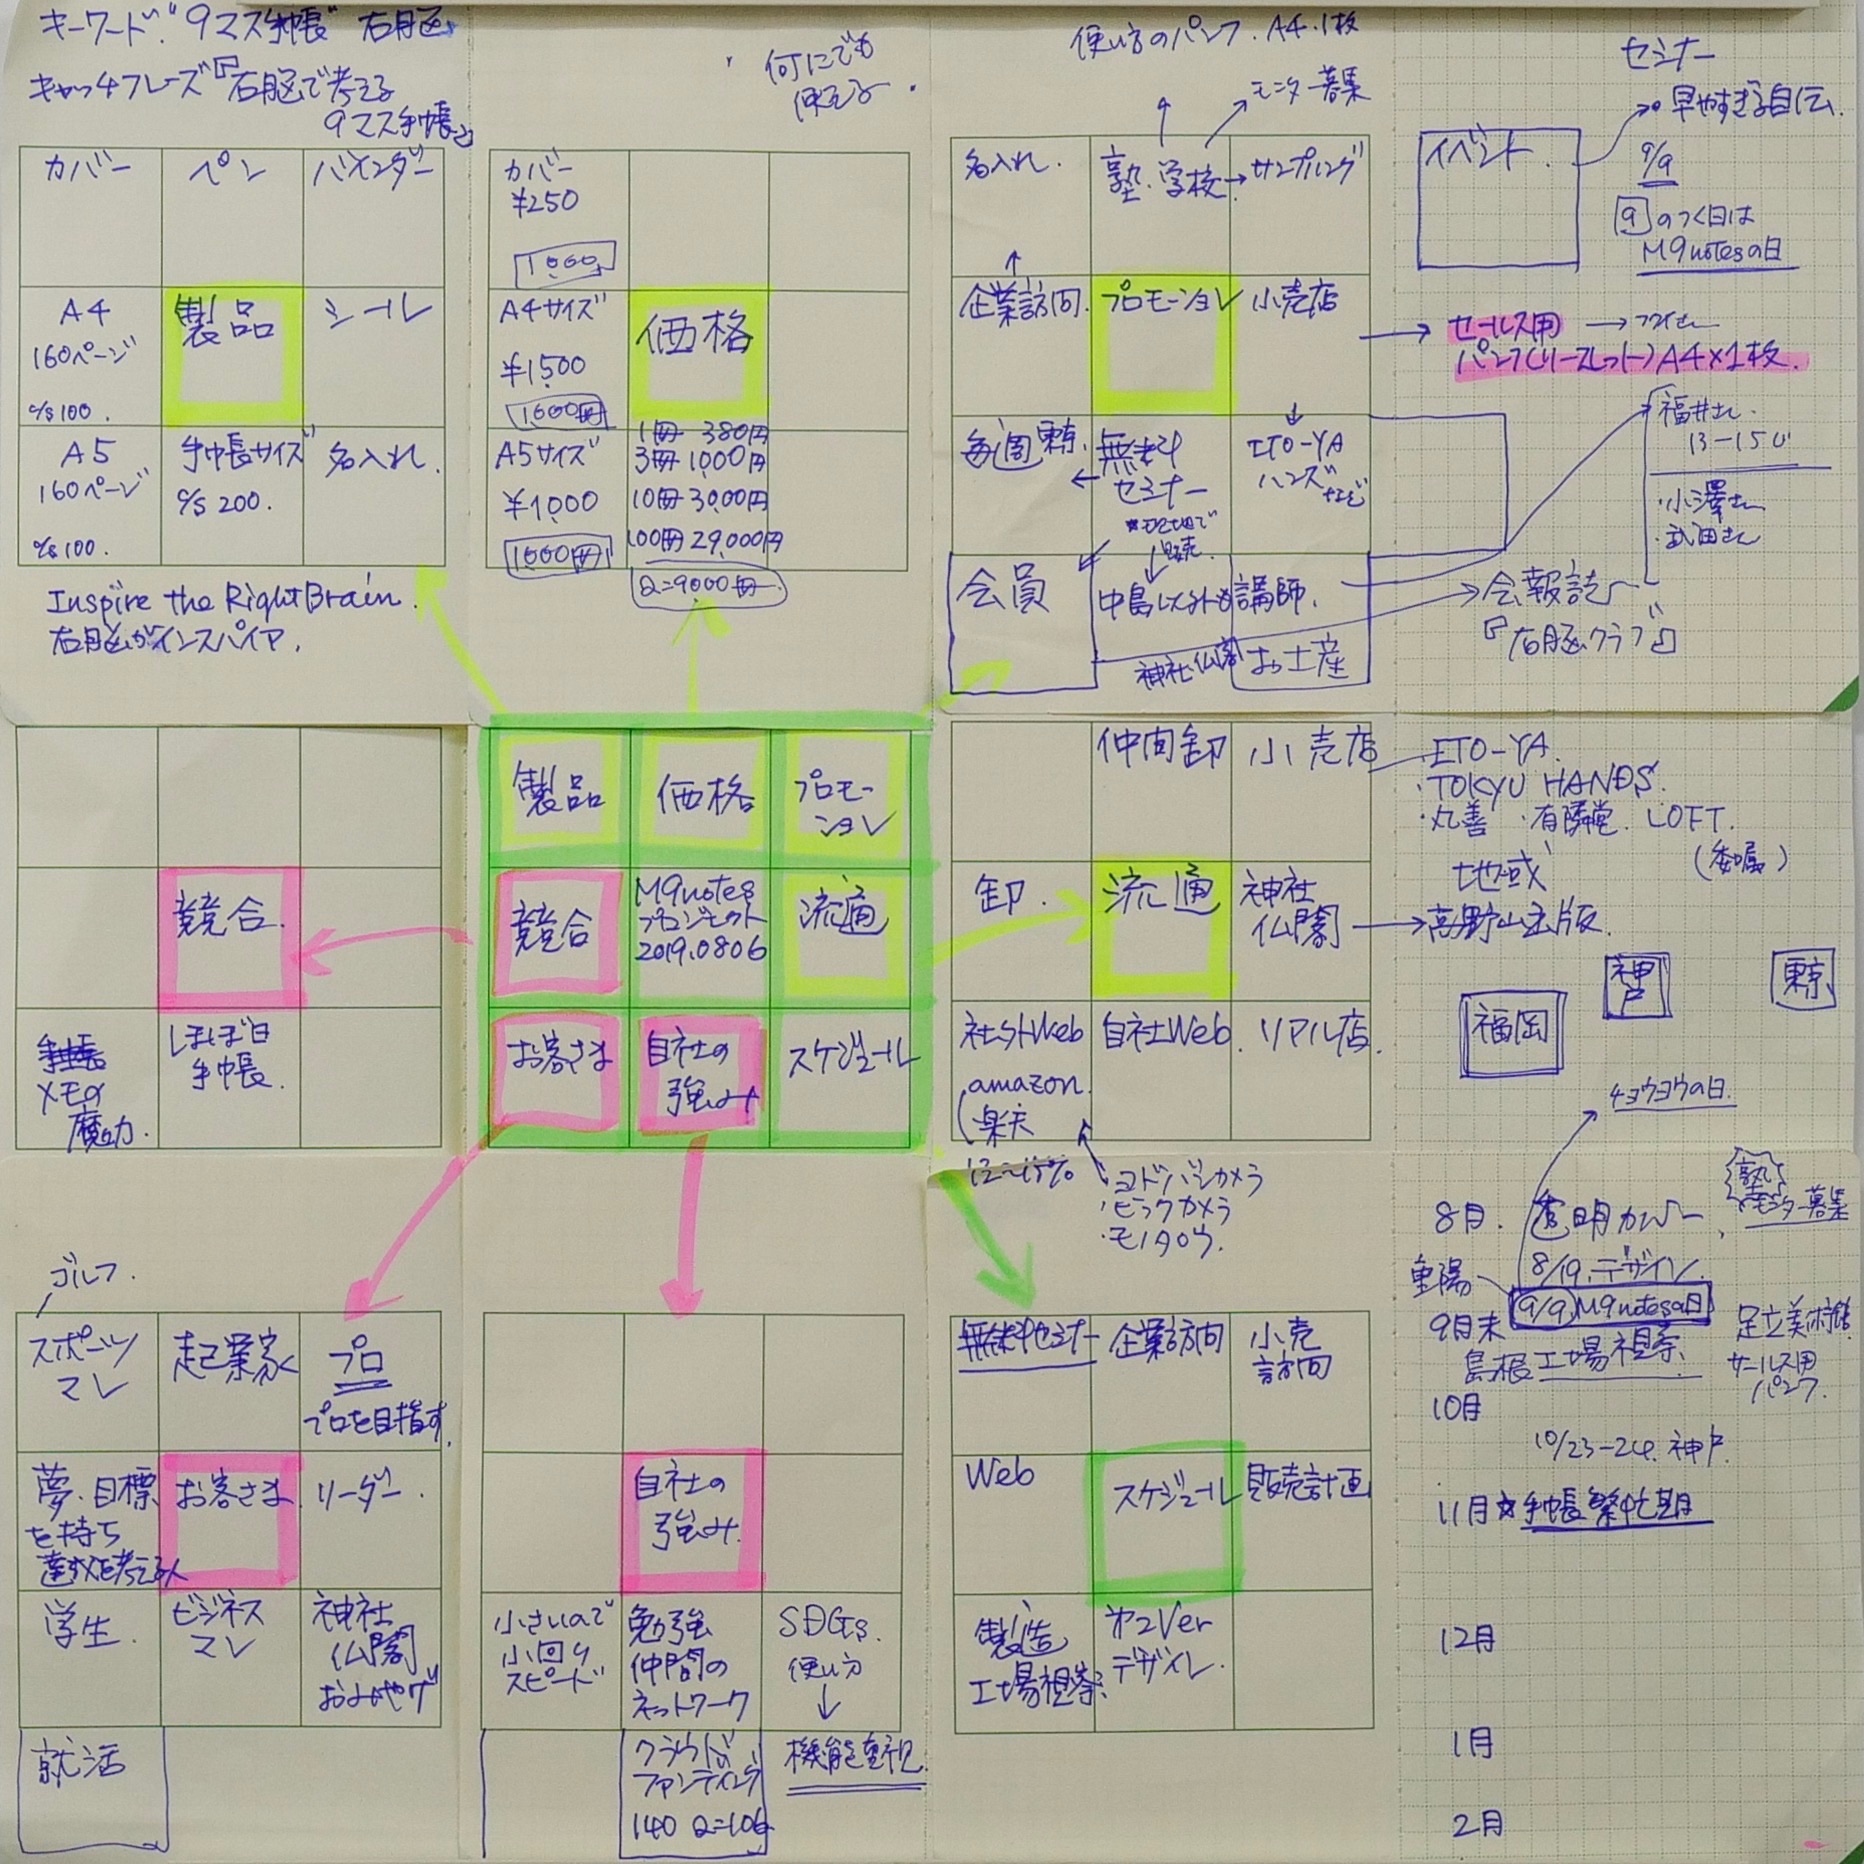 キーワード"9マス手帳" 右脳
キャッチフレーズ『右脳で考える
9マス手帳』
カバー
ペン
バインダー
A4
160ページ
c/s 100.
製品
シール
A5
160ページ
c/s 100.
手帳サイズ
c/s 200.
名入れ.
Inspire the Right Brain.
右脳がインスパイア.
何にでも
使える.
カバー
¥250
1000
A4サイズ
¥1,500
1000冊
価格
A5サイズ
¥1,000
1000冊
1冊 380円
3冊 1,000円
10冊 3,000円
100冊 29,000円
Q=9000冊
使い方のパンフ. A4. 1枚
モニター募集
名入れ.
塾.学校→サンプリング
企業訪問.
プロモーション
小売店
毎週東京.
無料
セミナー
*現地で
販売.
ITO-YA
ハンズなど
会員
中島以外も
講師.
神社仏閣
お土産
セミナー
早やすぎる自伝.
イベント.
9/9
9のつく日は
M9notesの日
セールス用
パンフ(リーフレット)A4×1枚.
福井さん.
13-15
・小澤さん
・武田さん
会報誌
『右脳クラブ』
競合.
手帳
メモの
魔力.
ほぼ日
手帳.
製品
価格
プロモー
ション
競合
M9notes
プロジェクト
2019.0806
流通
お客さま
自社の
強み
スケジュール
仲間卸
小売店
卸.
流通
神社
仏閣
社外Web
amazon.
楽天
12~15%
自社Web.
リアル店.
・ヨドバシカメラ
・ビックカメラ
・モノタロウ.
・ITO-YA.
・TOKYU HANDS.
・丸善 ・有隣堂. LOFT.
(委嘱)
地域
高野山出版.
神戸
東京
福岡
チョウヨウの日.
ゴルフ.
スポーツ
マン
起業家
プロ
プロを目指す.
夢.目標
を持ち
達成を考える人
お客さま
リーダー.
学生.
ビジネス
マン
神社
仏閣
おみやげ
就活
自社の
強み.
小さいので
小回り
スピード
勉強
仲間の
ネットワーク
SDGs.
使い方
クラウド
ファンディング
140 Q=106
機能を重視.
無料セミナー
企業訪問
小売
訪問
Web
スケジュール
販売計画
製造
工場視察.
オ2Ver
デザイン.
8月. 透明カバー
塾
モニター募集
8/19.デザイン.
重陽
9/9 M9notesの日
9月末
島根 工場視察.
足立美術館
セールス用
パンフ.
10月
10/23-24.神戸.
11月 ☆手帳繁忙期
12月
1月
2月